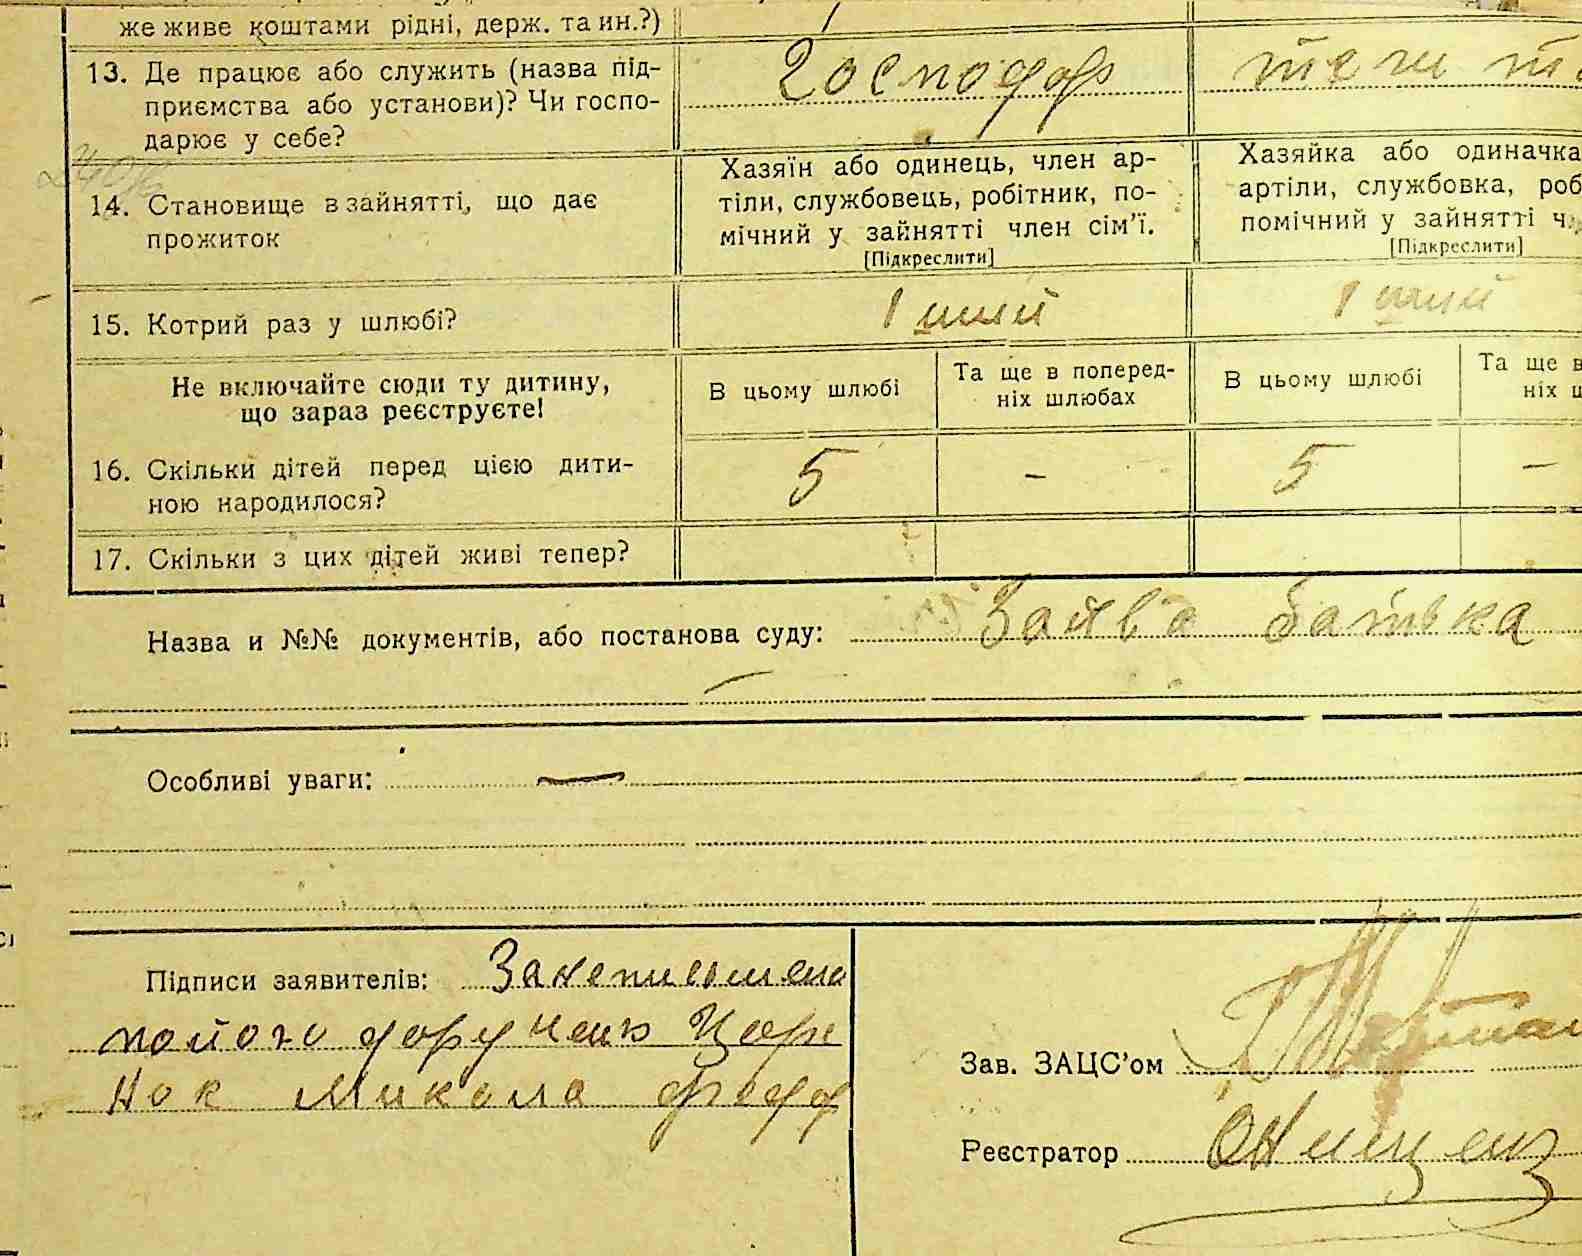 же живе коштами рідні, держ. та ин.?)
13. Де працює або служить (назва під-
приємства або установи)? Чи госпо-
дарює у себе?
Господар
14. Становище в зайнятті, що дає
прожиток
Хазяїн або одинець, член ар-
тіли, службовець, робітник, по-
мічний у зайнятті член сім'ї.
[Підкреслити]
Хазяйка або одиначка
артіли, службовка, роб
помічний у зайнятті ч
[Підкреслити]
15. Котрий раз у шлюбі?
1 ший
1 ший
Не включайте сюди ту дитину,
що зараз реєструєте!
В цьому шлюбі
Та ще в поперед-
ніх шлюбах
В цьому шлюбі
Та ще в
ніх ш
16. Скільки дітей перед цією дити-
ною народилося?
5
-
5
-
17. Скільки з цих дітей живі тепер?
Назва и №№ документів, або постанова суду: Заява батька
Особливі уваги: —
Підписи заявителів: За неписьмено
Микола
Зав. ЗАЦС'ом
Реєстратор